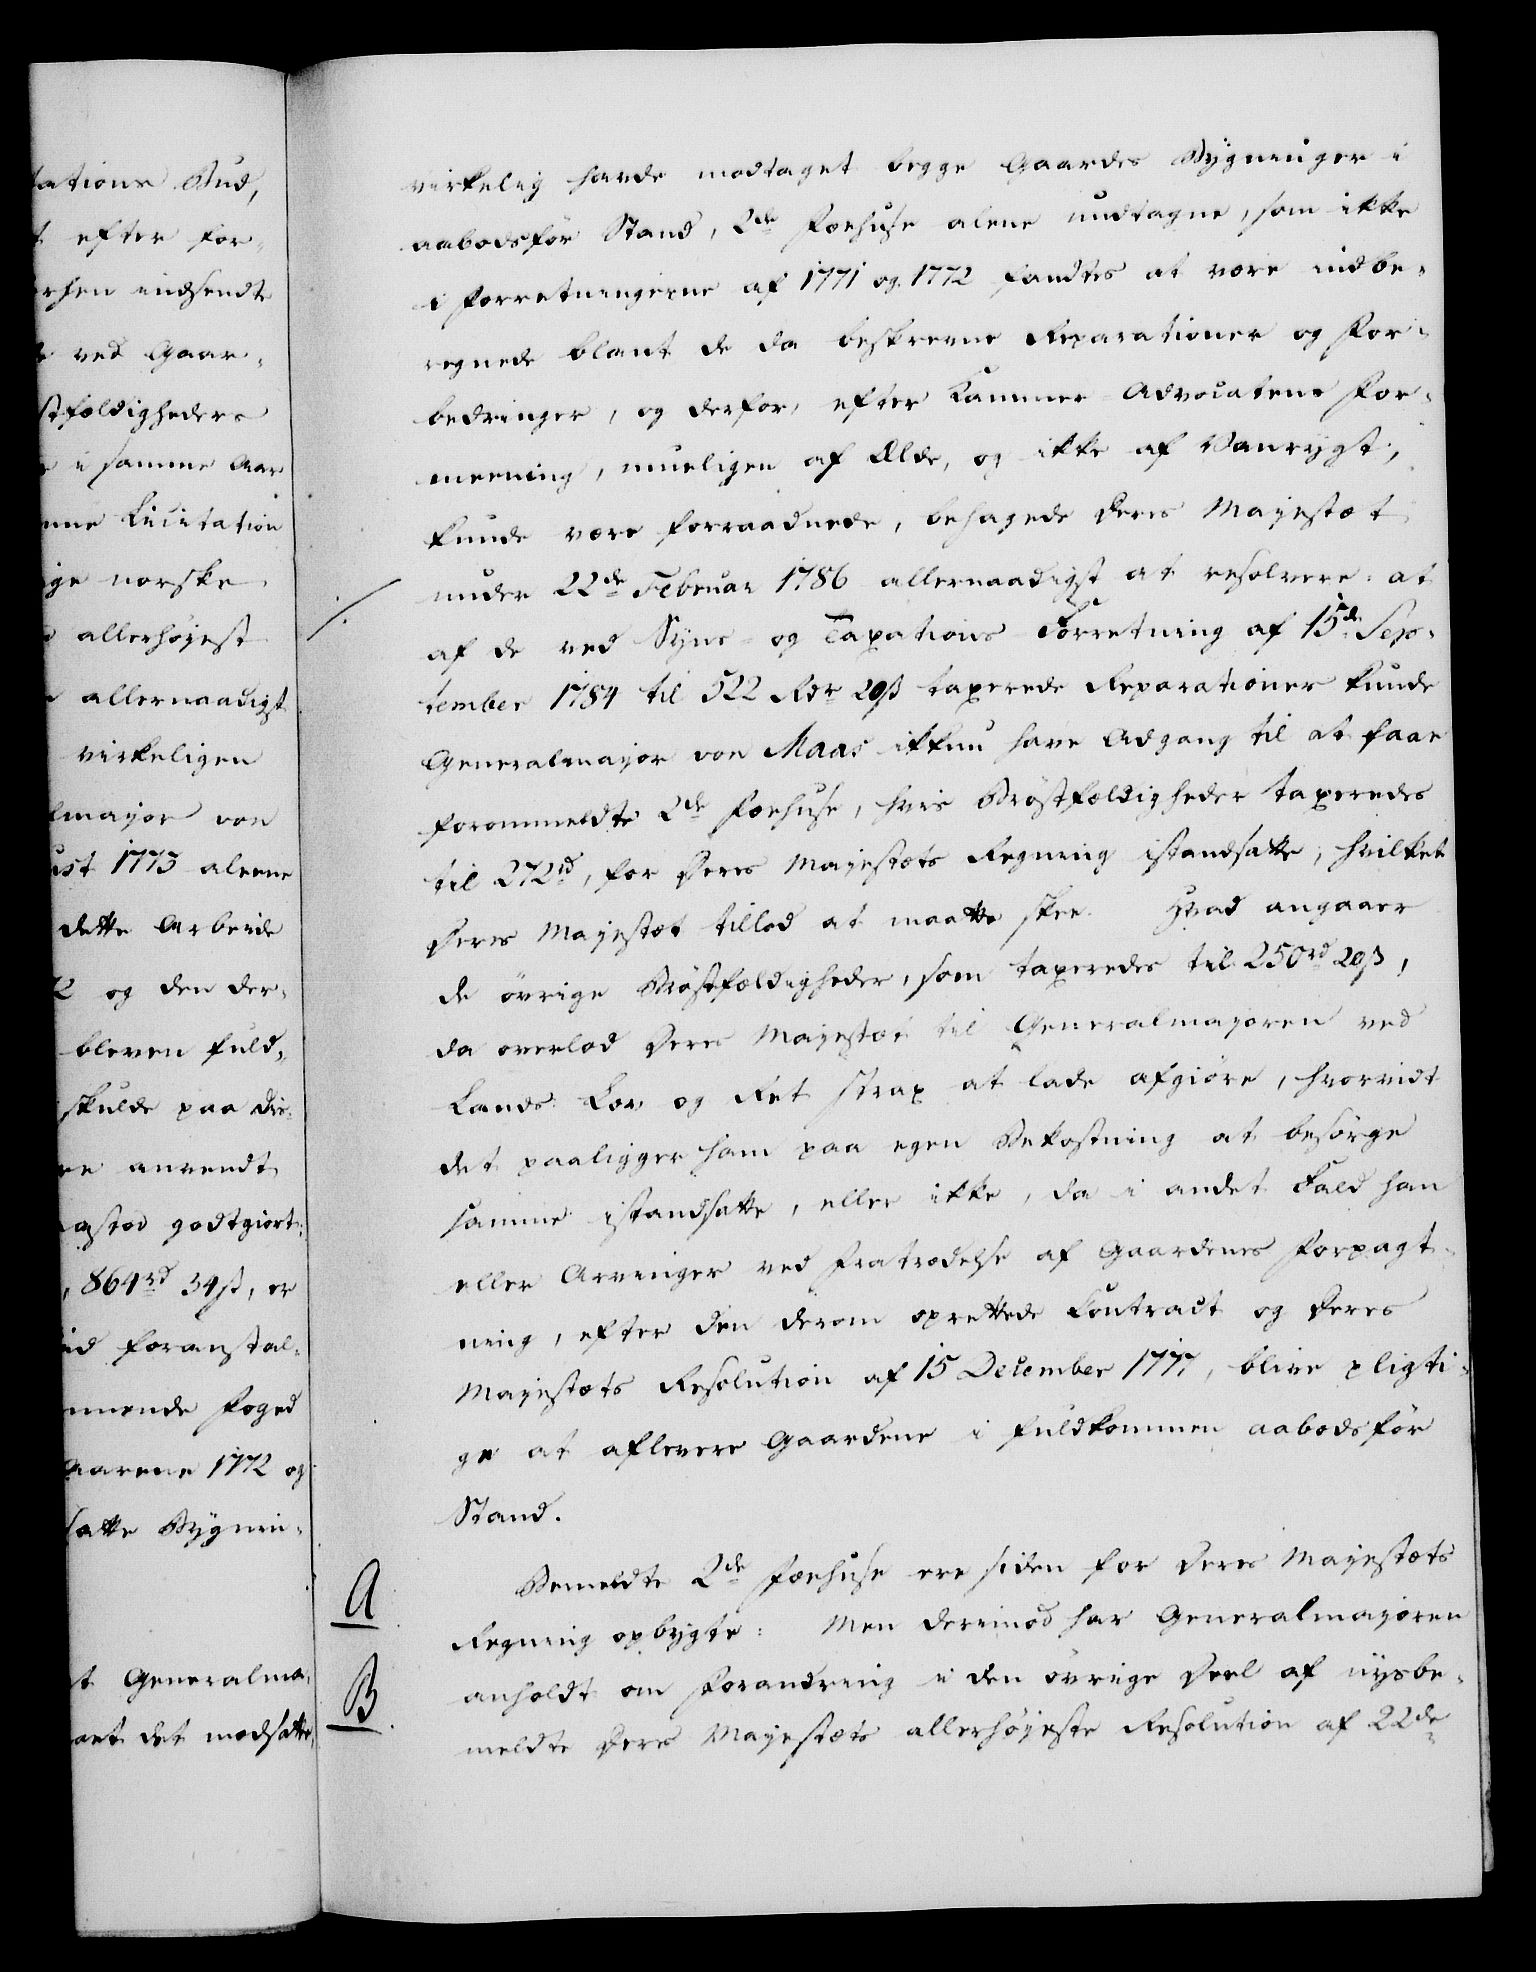 tations Bud,
t efter for-
erhen indsendte
e ved Gaar-
stfældigheders
e i samme Aar
nne Licitation
ige norske
allerhøyest
allernaadigst
virkeligen
lmajor von
ust 1773 aleene
dette Arbeide
2 og den der-
bleven fuld-
skulde paa die-
re anvendt
asted godtgiort:
, 864rd 34ß, er
id foranstal-
mmende Foged
Aarene 1772 og
satte Bygnin-
t Generalma-
aet det modsatte,
virkelig havde modtaget begge Gaardes Bygninger i
aabodsför Stand, 2de Foehuse alene undtagne, som ikke
i Forretningerne af 1771 og 1772 fandtes at være indbe-
regnede blant de da beskrevne Reparationer og For-
bedringer, og derfor, efter Kammer-Advocatens For-
meening, mueligen af Ælde, og ikke af Vanrygt,
kunde være forraadnede, behagede Deres Majestæt
under 22de Februar 1786 allernaadigst at resolvere: at
af de ved Syns- og Taxations-Forretning af 15de Sep-
tember 1784 til 522 Rdr 20ß taxerede Reparationer kunde
Generalmajor von Maas ikkun have Adgang til at faae
forommeldte 2de Foehuse, hvis Bröstfældigheder taxeredes
til 272rd, for Deres Majestæts Regning istandsatte, hvilket
Deres Majestæt tillod at maatte skee. Hvad angaaer
de övrige Bröstfældigheder, som taxeredes til 250rd 20ß,
da overlod Deres Majestæt til Generalmajoren ved
Lands Lov og Ret strax at lade afgiöre, hvorvidt
det paaligger ham paa egen Bekostning at besörge
samme istandsatte, eller ikke, da i andet Fald han
eller Arvinger ved Fratrædelse af Gaardenes Forpagt-
ning, efter den derom oprettede Contract og Deres
Majestæts Resolution af 15 December 1777, blive pligti-
ge at aflevere Gaardene i fuldkommen aabodsför
Stand.
A
Bemeldte 2de Foehuse ere siden for Deres Majestæts
Regning opbygte: Men derimod har Generalmajoren
B
anholdt om Forandring i den övrige Deel af nysbe-
meldte Deres Majestæts allerhöjeste Resolution af 22de